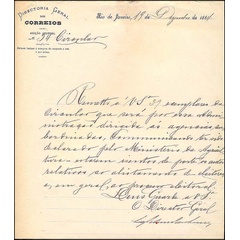 DIRECTORIA GERAL
DOS
CORREIOS
Circular
Rio de Janeiro, 19 de Dezembro de 1884
Remetto a V. S. 39 exemplares da
Circular que será por essa Admi-
nistração dirigida ás agencias su-
bordinadas, communicando ter sido
declarado pelo Ministerio da Agricul-
tura estarem isentos de porte
relativos ao alistamento de eleitores
e, em geral, ao processo eleitoral.
Deus Guarde a V. S.
O Director Geral